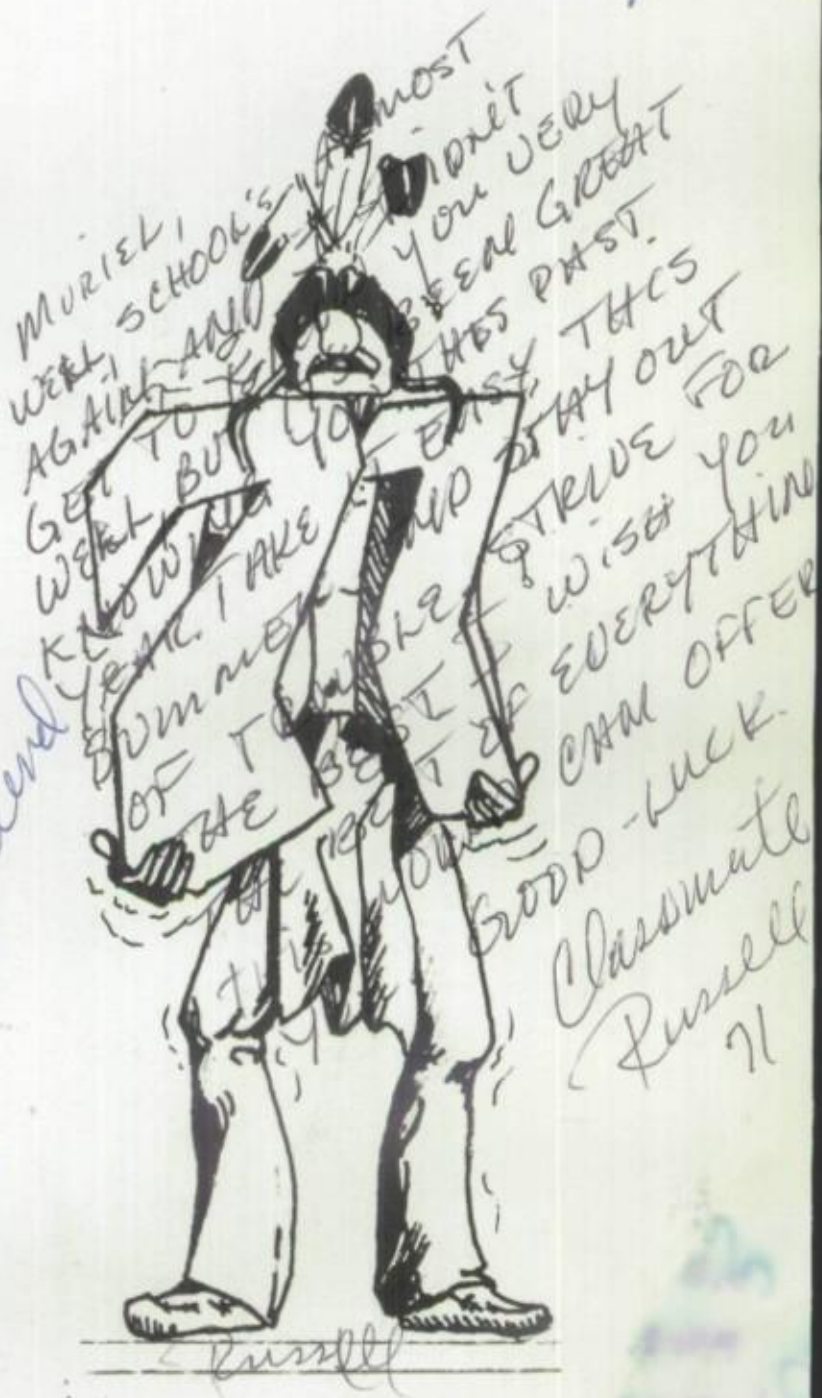 MURIEL,
WELL, SCHOOL'S ALMOST
AGAIN AND DIDN'T
GET TO YOU VERY
WELL, BUT BEEN GREAT
KNOWING YOU THIS PAST.
YEAR. TAKE EASY THIS
SUMMER AND STAY OUT
OF TROUBLE, & STRIVE FOR
THE BEST I WISH YOU
THE BEST OF EVERYTHING
THIS CAN OFFER
YOU
GOOD-LUCK.
Classmate
Russell
71
Russell